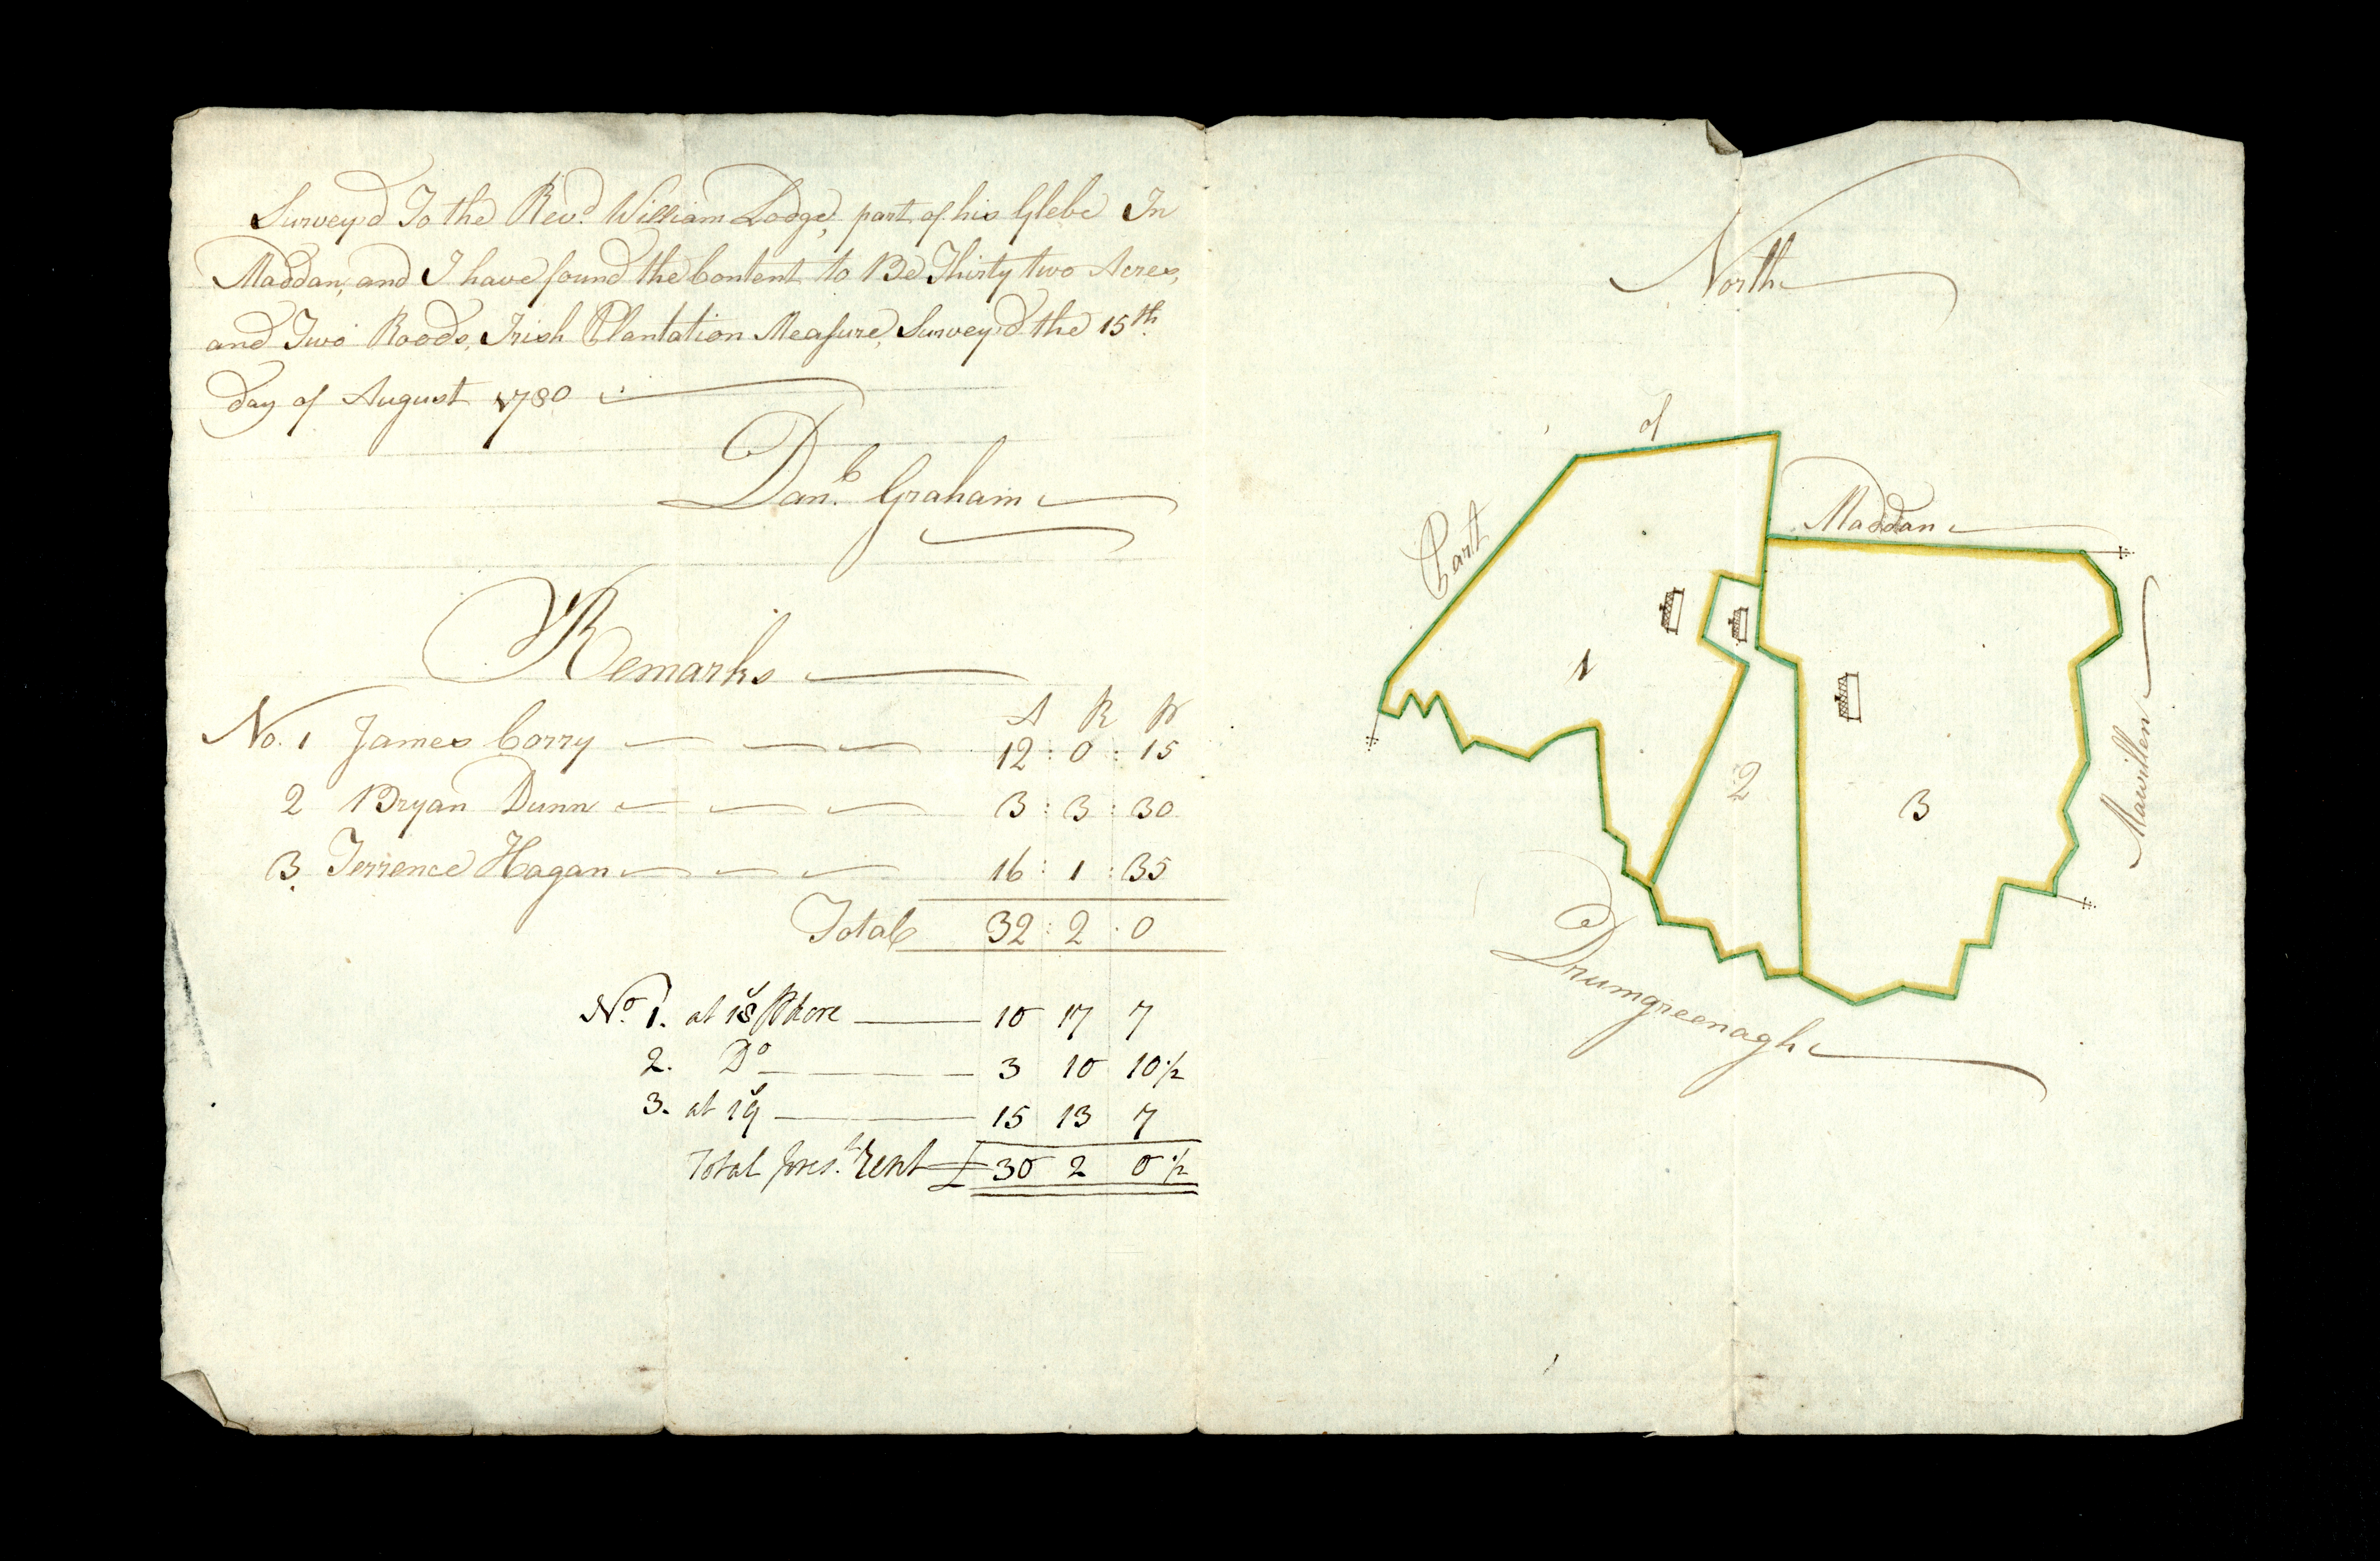 Survey'd To the Revd. William Lodge, part of his Glebe In
Maddan, and I have found the Content to Be Thirty two Acres,
and Two Roods, Irish Plantation Measure, Survey'd the 15th
day of August 1780
Danl. Graham
Remarks
A R P
No. 1 James Corry 12 : 0 : 15
2 Bryan Dunn 3 : 3 : 30
3 Terrence Hagan 16 : 1 : 35
Total 32 : 2 : 0
No. 1. at 18s 10 17 7
2. Do 3 10 10½
3. at 19s 15 13 7
Total prest. Rent £ 30 2 0½
North
Part
of
Maddan
1
2
3
Mawillen
Drumgreenagh